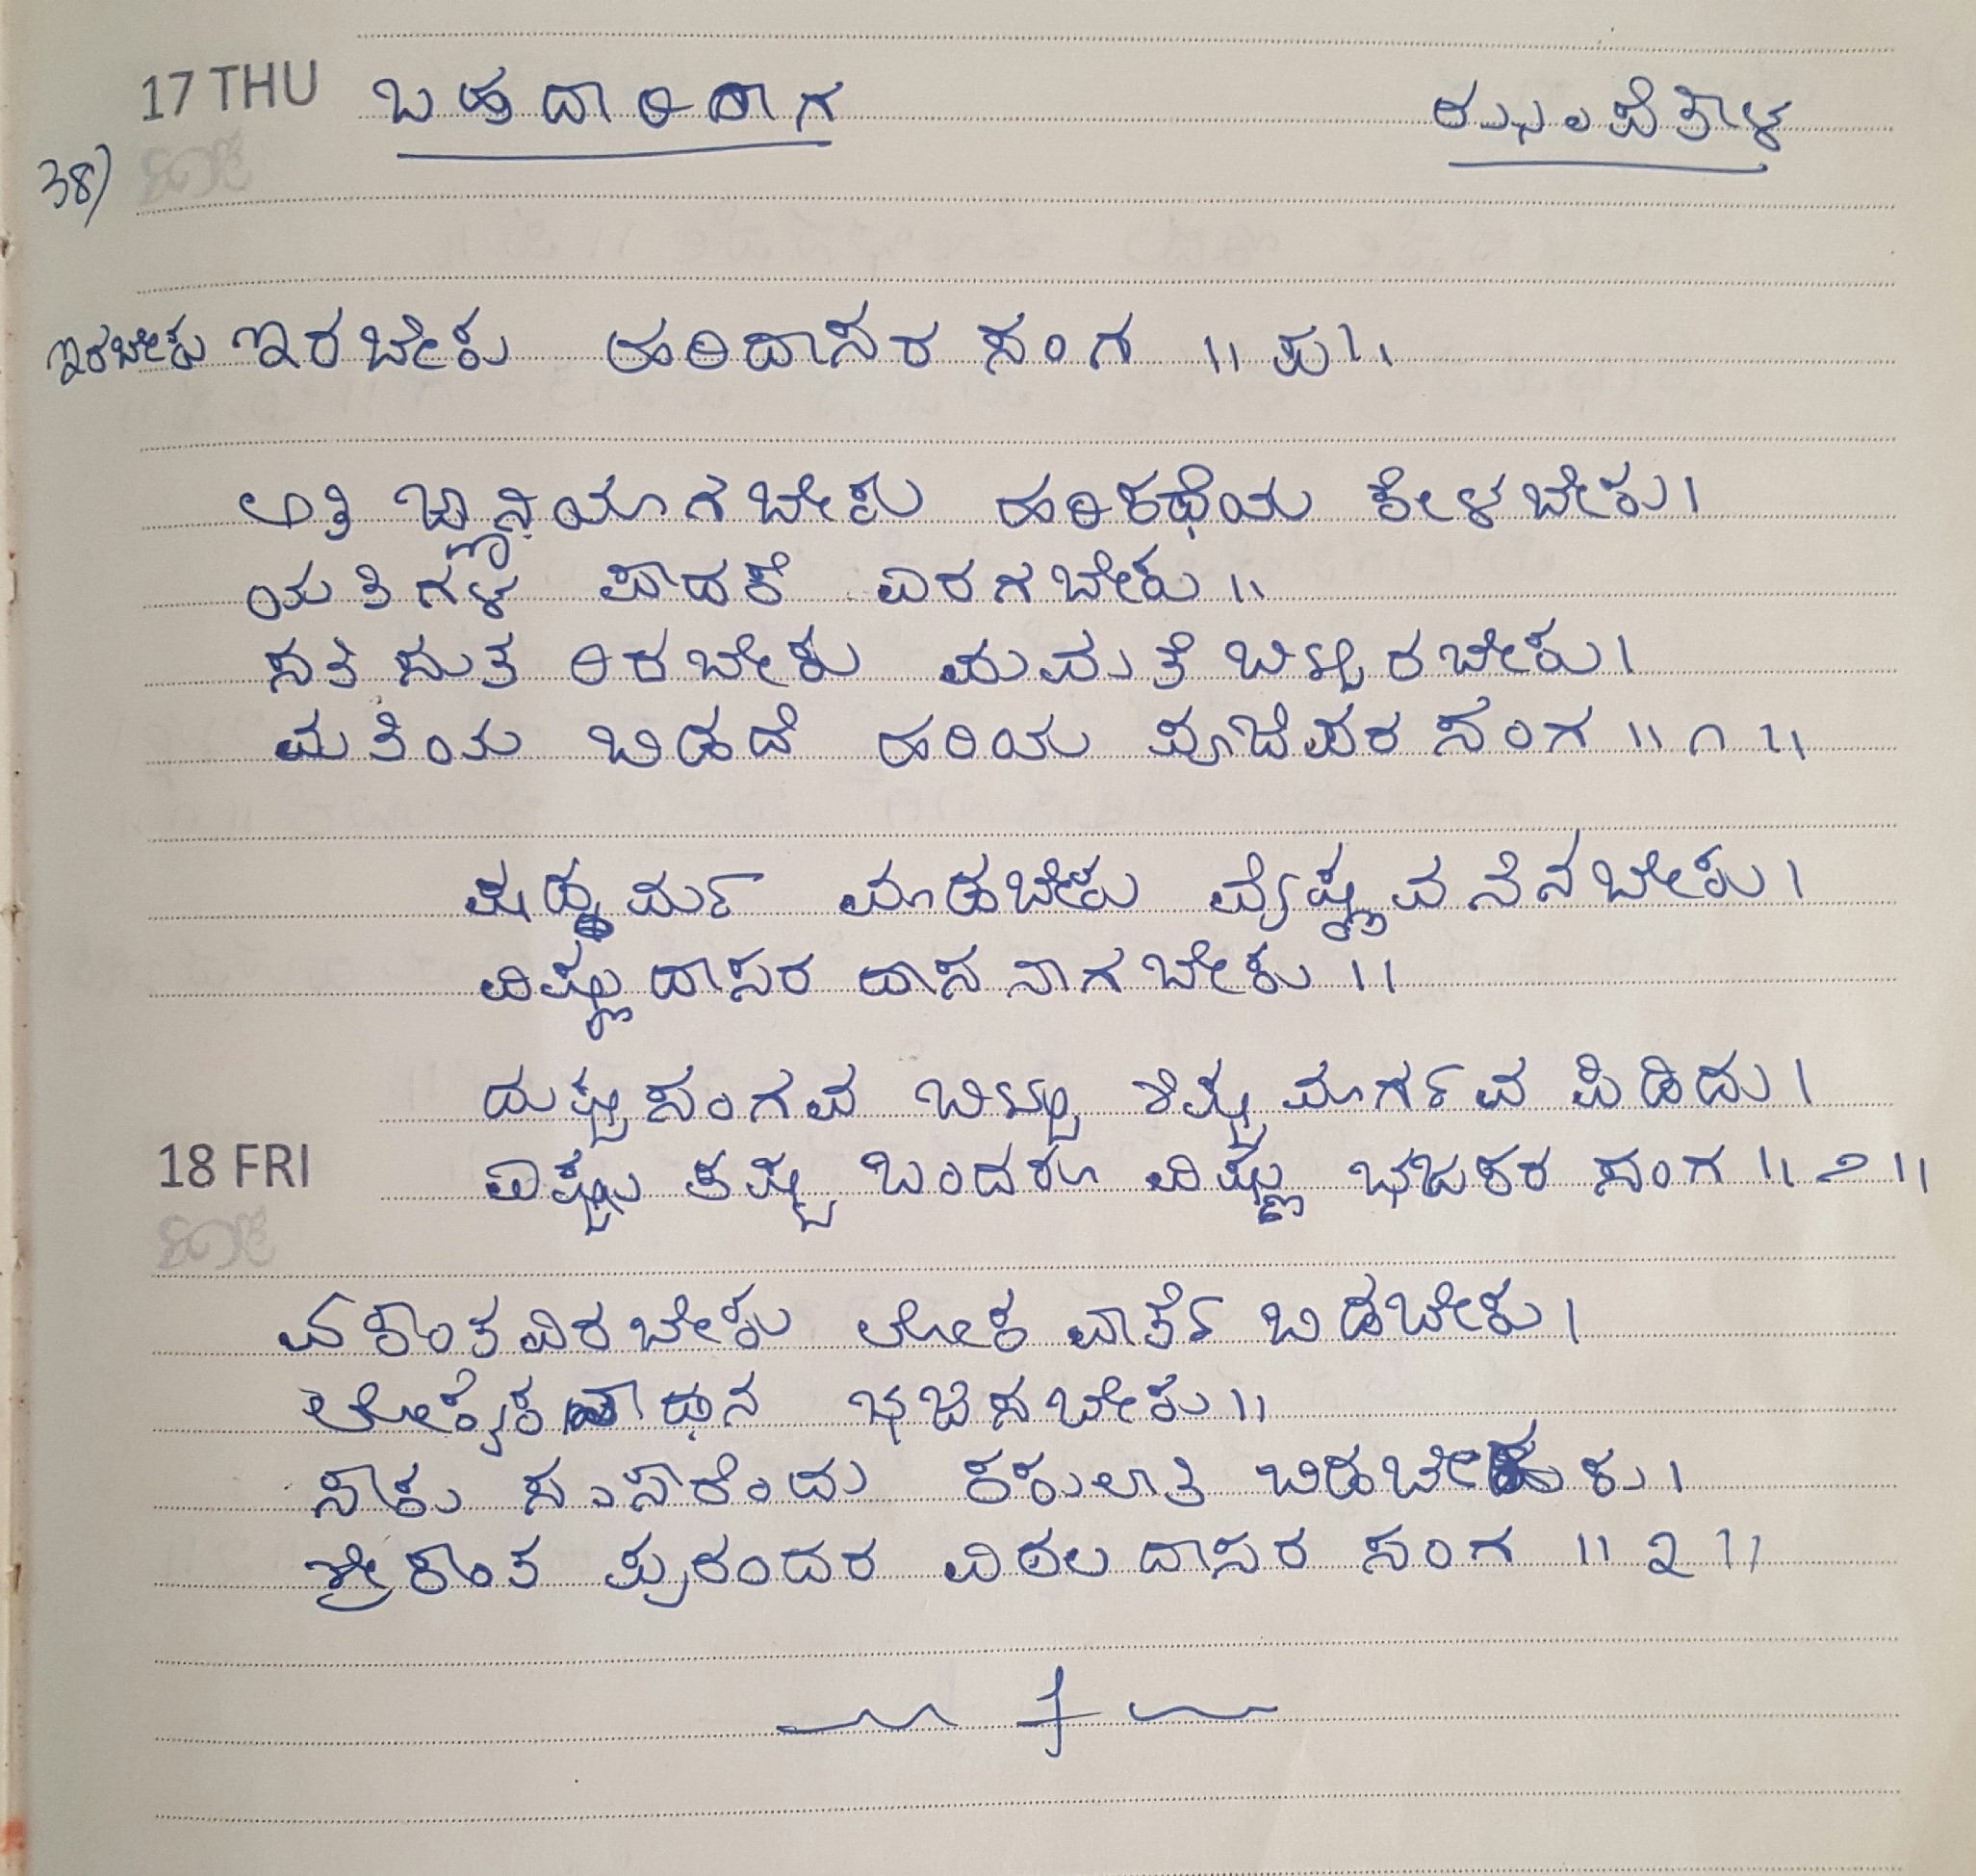 17 THU ಬಹುದಾರಿರಾಗ ಝಂಪೆತಾಳ
38)
ಇರಬೇಕು ಇರಬೇಕು ಹರಿದಾಸರ ಸಂಗ ॥ ಪ ॥
ಅತಿ ಜ್ಞಾನಿಯಾಗಬೇಕು ಹರಿಕಥೆಯ ಕೇಳಬೇಕು।
ಯತಿಗಳ ಪಾದಕೆ ಎರಗಬೇಕು॥
ಸತಿ ಸುತ ರಿರಬೇಕು ಮಮತೆ ಬಿಟ್ಟಿರಬೇಕು।
ಮತಿಯ ಬಿಡದೆ ಹರಿಯ ಪೂಜಿಪರ ಸಂಗ ॥ ೧ ॥
ಷಟ್ಕರ್ಮ ಮಾಡಬೇಕು ವೈಷ್ಣವನೆನಬೇಕು।
ವಿಷ್ಣುದಾಸರ ದಾಸನಾಗಬೇಕು ॥
ದುಷ್ಟಸಂಗವ ಬಿಟ್ಟು ಶಿಷ್ಟಮಾರ್ಗವ ಪಿಡಿದು।
18 FRI ಎಷ್ಟು ಕಷ್ಟ ಬಂದರೂ ವಿಷ್ಣು ಭಜಕರ ಸಂಗ ॥ ೨ ॥
ಏಕಾಂತವಿರಬೇಕು ಲೋಕ ವಾರ್ತೆ ಬಿಡಬೇಕು।
ಲೋಕೈಕನಾಥನ ಭಜಿಸಬೇಕು॥
ಸಾಕು ಸಂಸಾರೆಂದು ಕಕುಲಾತಿ ಬಿಡಬೇಕು।
ಶ್ರೀಕಾಂತ ಪುರಂದರ ವಿಠಲ ದಾಸರ ಸಂಗ ॥ ೩ ॥